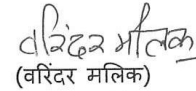 वरिंदर मलिक
(वरिंदर मलिक)